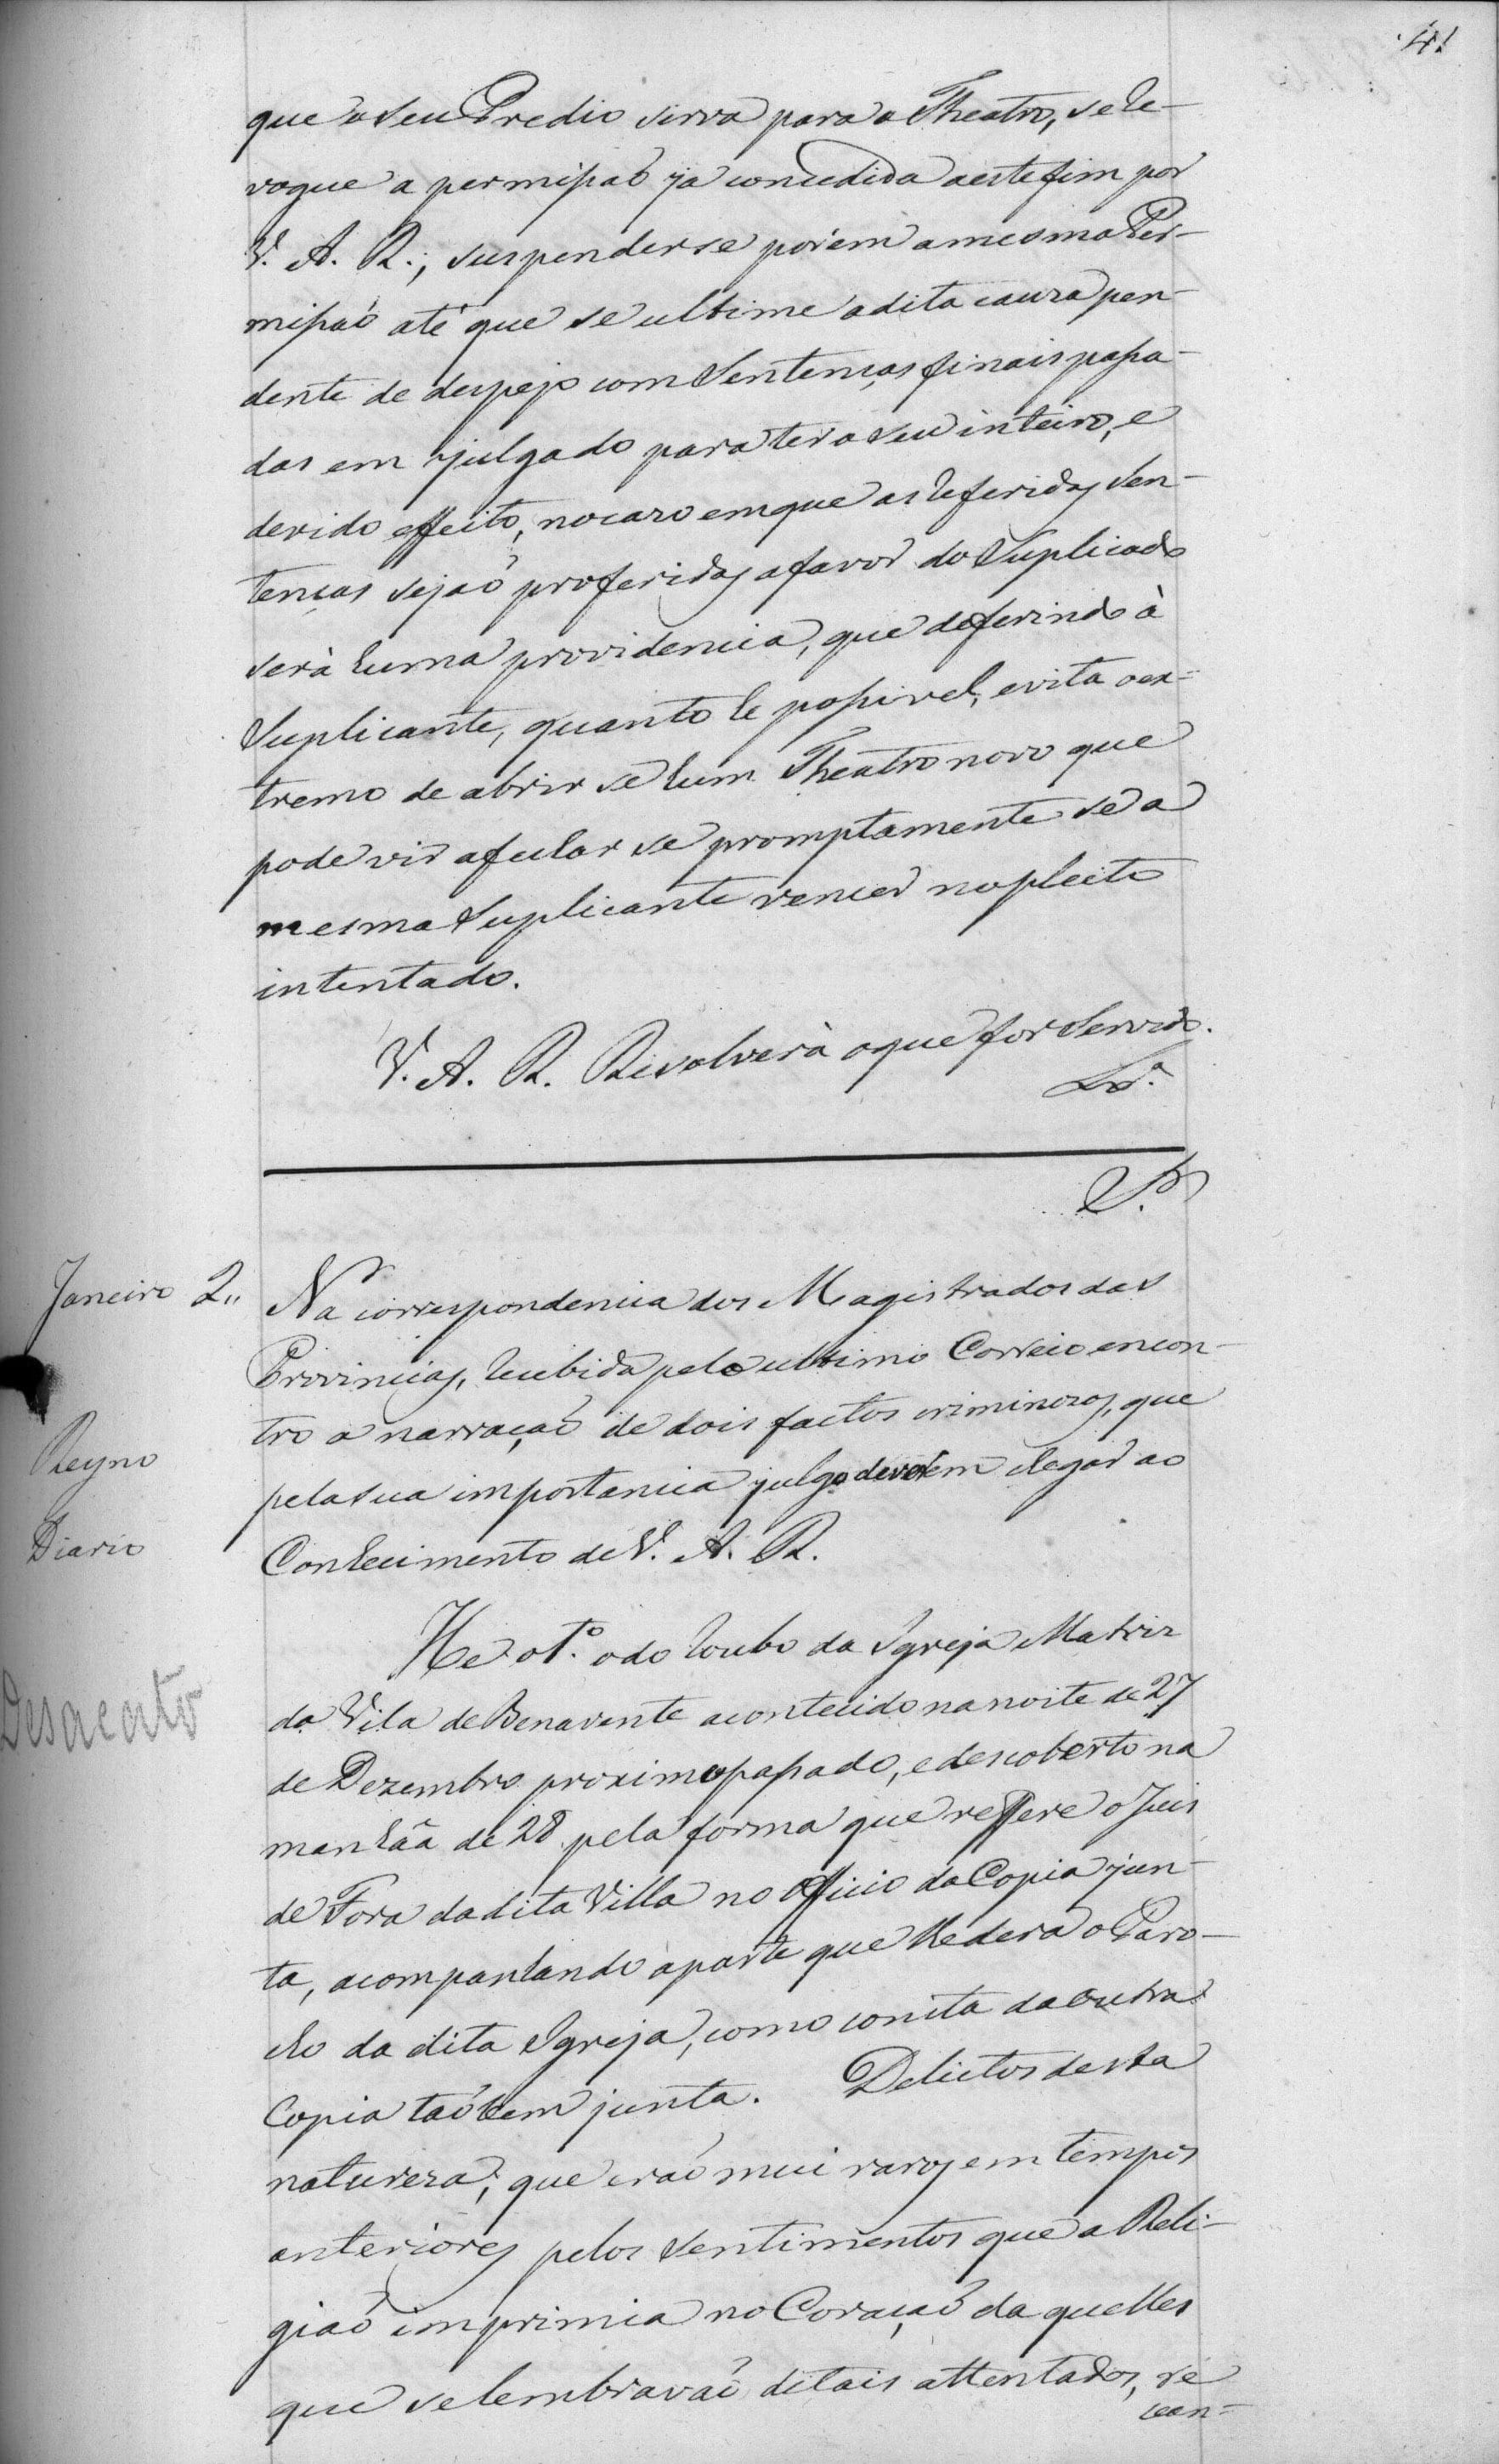 41
que o seu Predio sirva para o Theatro, se re-
vogue a permissaõ já concedida a este fim por
V. A. R.; suspender se porem a mesma Per-
missaõ até que se ultime a dita cauza pen-
dente de despejo com Sentenças finais passa-
das em julgado para ter o seu inteiro, e
devido effeito, no cazo em que as referidas Sen-
tenças sejaõ proferidas a favor do Suplicado
serà huma providencia, que deferindo à
Suplicante, quanto he possivel, evita o ex-
tremo de abrir se hum Theatro novo que
pode vir a fechar se promptamente se a
mesma Suplicante vencer no pleito
intentado.
V. A. R. Resolverà o que for Servido.
Lx.ª
S.or
Janeiro 2,, Na correspondencia dos Magistrados das
Provincias, recebida pelo ultimo Correio encon-
tro a narraçaõ de dois factos criminozos, que
Reyno
pela sua importancia julgo deverem chegar ao
Diario
Conhecimento de V. A. R.
He o 1.º o do roubo da Igreja Matriz
Desacato
da Vila de Benavente acontecido na noite de 27
de Dezembro proximo passado, e descoberto na
manhãa de 28 pela forma que reffere o Juis
de Fora da dita Villa no Officio da Copia jun-
ta, acompanhando a parte que lhe dera o Paro-
cho da dita Igreja, como consta da outra
Copia taõbem junta. Delictos desta
natureza, que eraõ mui raros em tempos
anteriores pelos sentimentos que a Reli-
giaõ imprimia no Coraçaõ daquelles
que se lembravaõ de tais attentados, se
con-